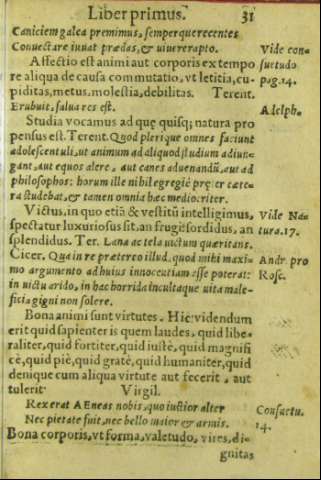 Liber primus. 31
Caniciem galea premimus, semperque recentes
Conuectare iuuat prædas, & uiuere rapto. Vide con
Affectio est animi aut corporis ex tempo suetudo
re aliqua de causa commutatio, vt letitia, cu- pag. 14.
piditas, metus, molestia, debilitas. Terent.
Erubuit, salua res est. Adelph.
Studia vocamus ad quę quisq; natura pro
pensus est. Terent. Quod plerique omnes faciunt
adolescentuli, ut animum ad aliquod studium adiun-
gant, aut equos alere, aut canes ad uenandũ, aut ad
philosophos: horum ille nihil egregiè præter cæte-
ra studebat, & tamen omnia hæc mediocriter.
Victus, in quo etiã & vestitũ intelligimus, Vide Na-
spectatur luxuriosus sit, an frugi: sordidus, an tura. 17.
splendidus. Ter. Lana ac tela uictum quæritans.
Cicer. Qua in re prætereo illud, quod mihi maxi- Andr. pro
mo argumento ad huius innocentiam esse poterat: Rosc.
in uictu arido, in hac horrida incultaque uita male-
ficia gigni non solere.
Bona animi sunt virtutes. Hic videndum
erit quid sapienter is quem laudes, quid libe-
raliter, quid fortiter, quid iustè, quid magnifi
cè, quid piè, quid gratè, quid humaniter, quid
denique cum aliqua virtute aut fecerit, aut
tulerit. Virgil.
Rex erat AEneas nobis, quo iustior alter Consuetu.
Nec pietate fuit, nec bello maior & armis. 14.
Bona corporis, vt forma, valetudo, vires, di-
gnitas